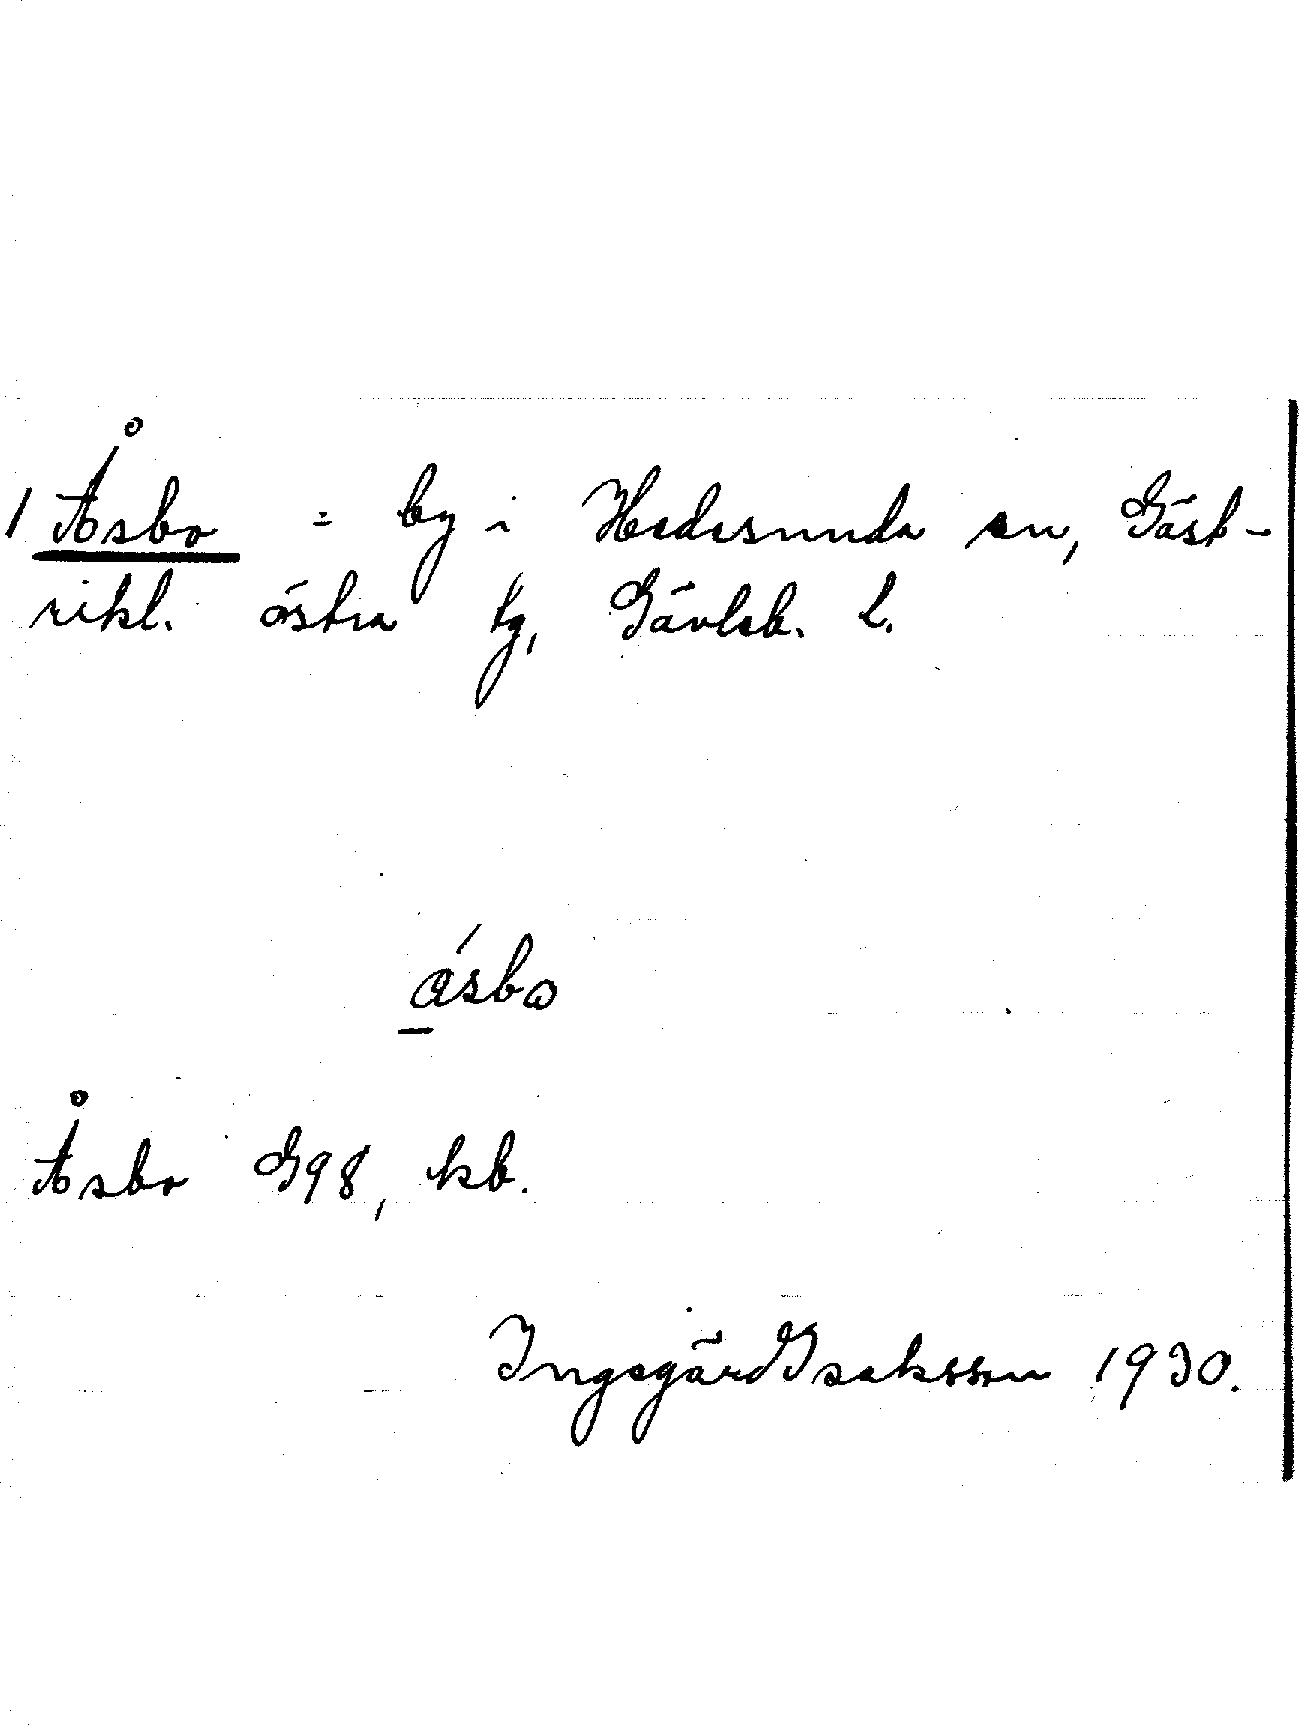 1 Åsbo = by i Hedesunda sn, Gäst-
rikl. östra tg, Gävleb. l.
åsbω
Åsbo G98, kb.
Ingegärd Isaksson 1930.